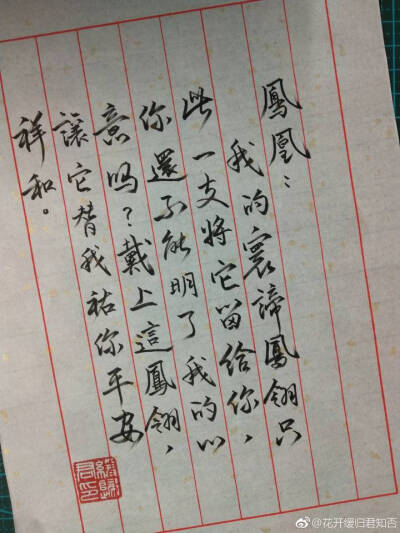 鳳凰：
我的寰諦鳳翎只
此一支將它留给你，
你還不能明了我的心
意吗？戴上這鳳翎，
讓它替我祜你平安
祥和。
@花开缓归君知否